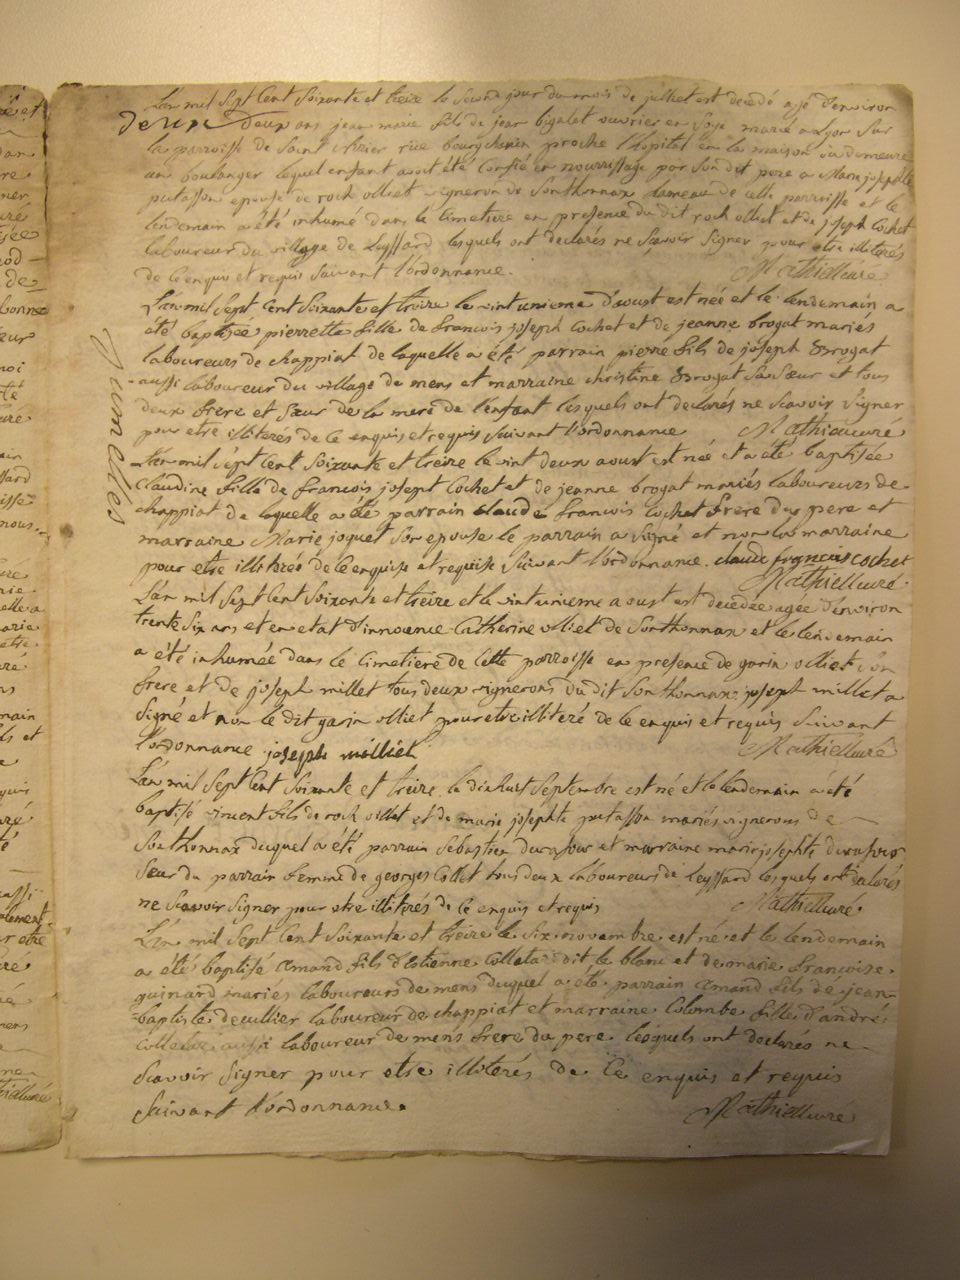 L'an mil sept cent soixante et treize le second jour du mois de juilliet est decedé agé d'environ
deux deux ans jean marie fils de jean bigalet ouvrier en soye marié a Lyon sur
la parroisse de saint nizier rue bourgchanin proche l'hopital en la maison où demeure
un boulanger lequel enfant avoit été confié en nourrissage par son dit pere a Marie josephte
putasson epouse de rock olliet vigneron de sonthonnax hameau de cette parroisse et le
lendemain a été inhumé dans le cimetiere en presence du dit rock olliet et de joseph Cochet
laboureur du village de Leyssard lesquels ont declarés ne sçavoir signer pour etre illiterés
de ce enquis et requis suivant l'ordonnance. Mathieu curé
L'an mil sept cent soixante et treize le vint unieme d'aoust est née et le lendemain a
été baptisée pierrette fille de francois joseph Cochet et de jeanne brogat mariés
laboureurs de chappiat de laquelle a été parrain pierre fils de joseph Brogat
aussi laboureur du village de mens et marraine christine Brogat sa sœur et tous
deux frere et sœur de la mere de l'enfant lesquels ont declarés ne scavoir signer
pour etre illiterés de ce enquis et requis suivant l'ordonnance Mathieu curé
jumelles
L'an mil sept cent soixante et treize le vint deux aoust est née et a été baptisée
Claudine fille de francois josept Cochet et de jeanne brogat mariés laboureurs de
chappiat de laquelle a été parrain claude francois Cochet frere du pere et
marraine Marie joguet son epouse le parrain a signé et non la marraine
pour etre illiterée de ce enquise et requise suivant l'ordonnance. claude françois cochet
Mathieu curé.
L'an mil sept cent soixante et treize et le vint unieme aoust est decedée agée d'environ
trente six ans et en etat d'innocence Catherine olliet de Sonthonnax et le lendemain
a été inhumée dans le cimetiere de cette parroisse en presence de garin olliet son
frere et de joseph millet tous deux vignerons du dit Sonthonnax joseph millet a
signé et non le dit garin olliet pour etre illiteré de ce enquis et requis suivant
l'ordonnance joseph milliet Mathieu curé
L'an mil sept cent soixante et treize le dixhuit septembre est né et le lendemain a été
baptisé vincent fils de rock olliet et de marie josephte putasson mariés vignerons de
Sonthonnax duquel a été parrain sebastien durafour et marraine marie josephte durafour
sœur du parrain femme de georges Collet tous deux laboureurs de Leyssard lesquels ont declarés
ne scavoir signer pour etre illiterés de ce enquis et requis Mathieu curé.
L'an mil sept cent soixante et treize le six novembre est né et le lendemain
a été baptisé Amand fils d'estienne Colleta dit le blanc et de marie francoise
guinard mariés laboureurs de mens duquel a été parrain amand fils de jean
baptiste decullier laboureur de chappiat et marraine Colombe fille d'andré
aussi laboureur de mens frere du pere lesquels ont declarés ne
scavoir signer pour etre illiterés de ce enquis et requis
suivant l'ordonnance. Mathieu curé